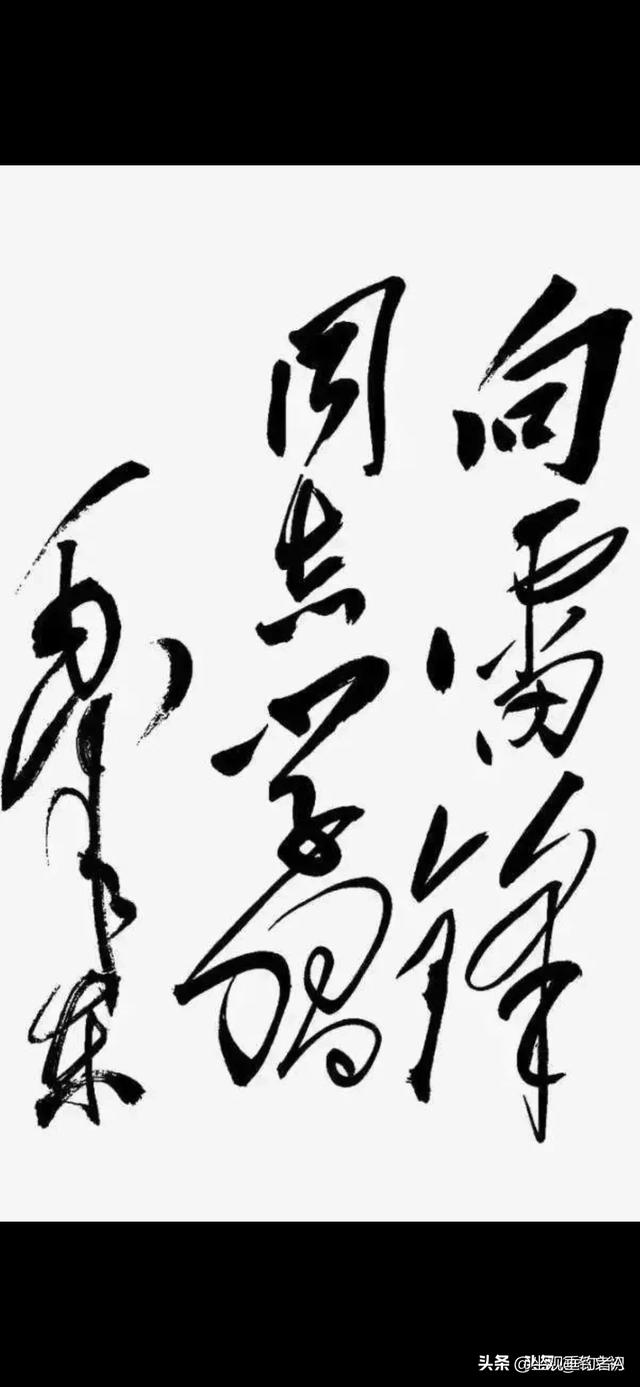 向雷锋
同志学习
毛泽东
头条